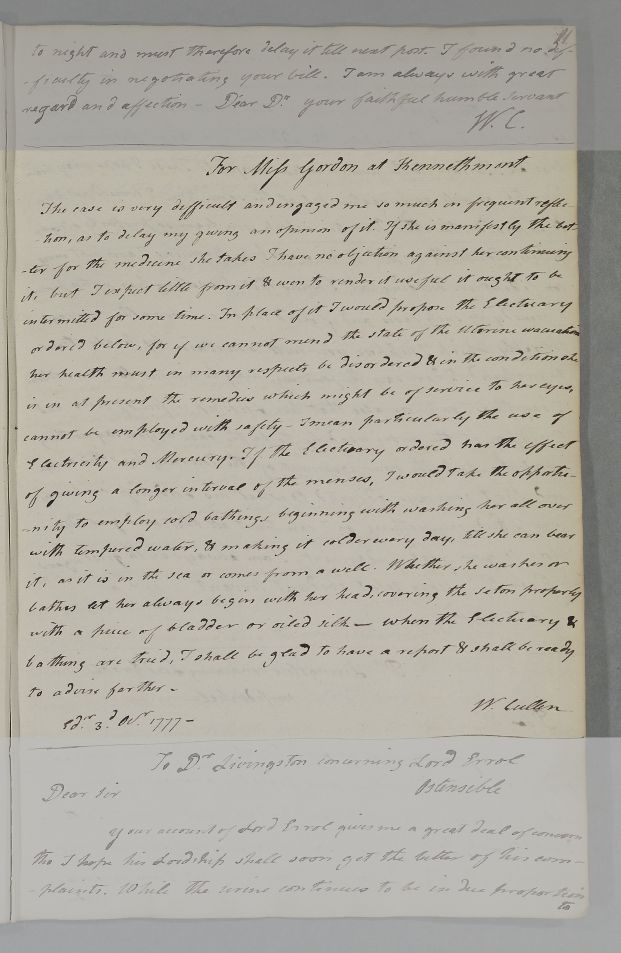 to night and must therefore delay it till next post. I found no dif-
-ficulty in negotiating your bill. I am always with great
regard and affection - Dear Dr. your faithful humble Servant
W. C.
For Miss Gordon at Kennethmont.
The case is very difficult and engaged me so much in frequent reflec-
-tion, as to delay my giving an opinion of it. If she is manifestly the bet-
-ter for the medicine she takes I have no objection against her continuing
it, but I expect little from it & even to render it useful it ought to be
intermitted for some time. In place of it I would propose the Electuary
ordered below, for if we cannot mend the state of the Uterine evacuation
her health must in many respects be disordered & in the condition she
is in at present the remedies which might be of service to her eyes,
cannot be employed with safety - I mean particularly the use of
Electricity and Mercury. If the Electuary ordered has the effect
of giving a longer interval of the menses, I would take the opportu-
-nity to employ cold bathings beginning with washing her all over
with tempered water, & making it colder every day, till she can bear
it, as it is in the sea or comes from a well. Whether she washes or
bathes let her always begin with her head, covering the seton properly
with a piece of bladder or oiled silk — when the Electuary &
bathing are tried, I shall be glad to have a report & shall be ready
to advise farther -
W. Cullen
Edr. 3d. Octr. 1777 -
To Dr. Livingston concerning Lord Errol
Ostensible
Dear Sir
Your account of Lord Errol gives me a great deal of concern
tho I hope his Lordship shall soon get the better of his com-
-plaints. While the urine continues to be in due proportion
to